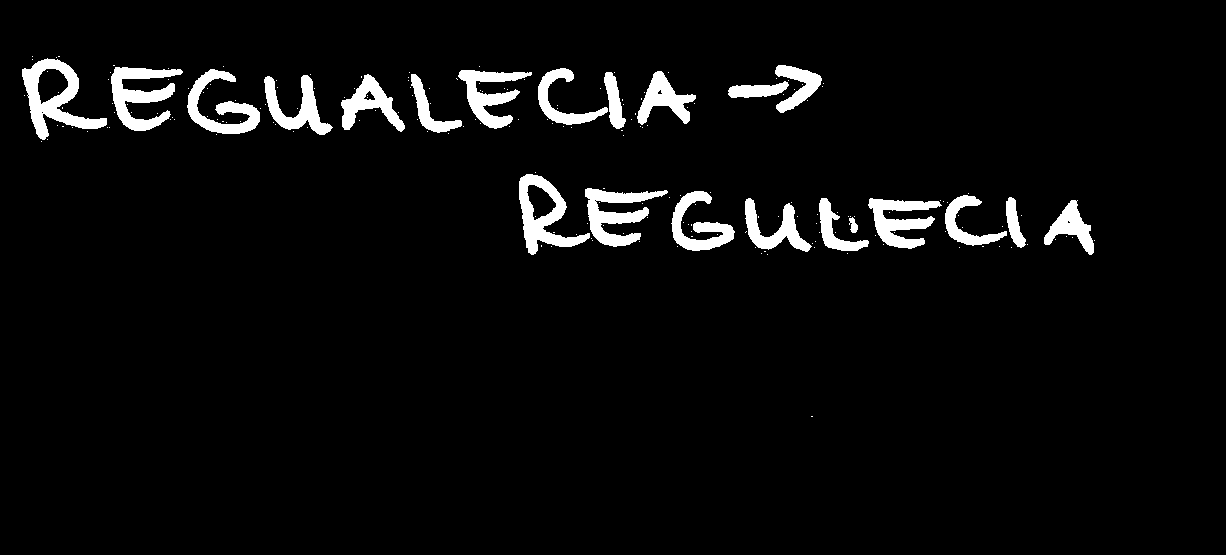 REGUALECIA →
REGULECIA